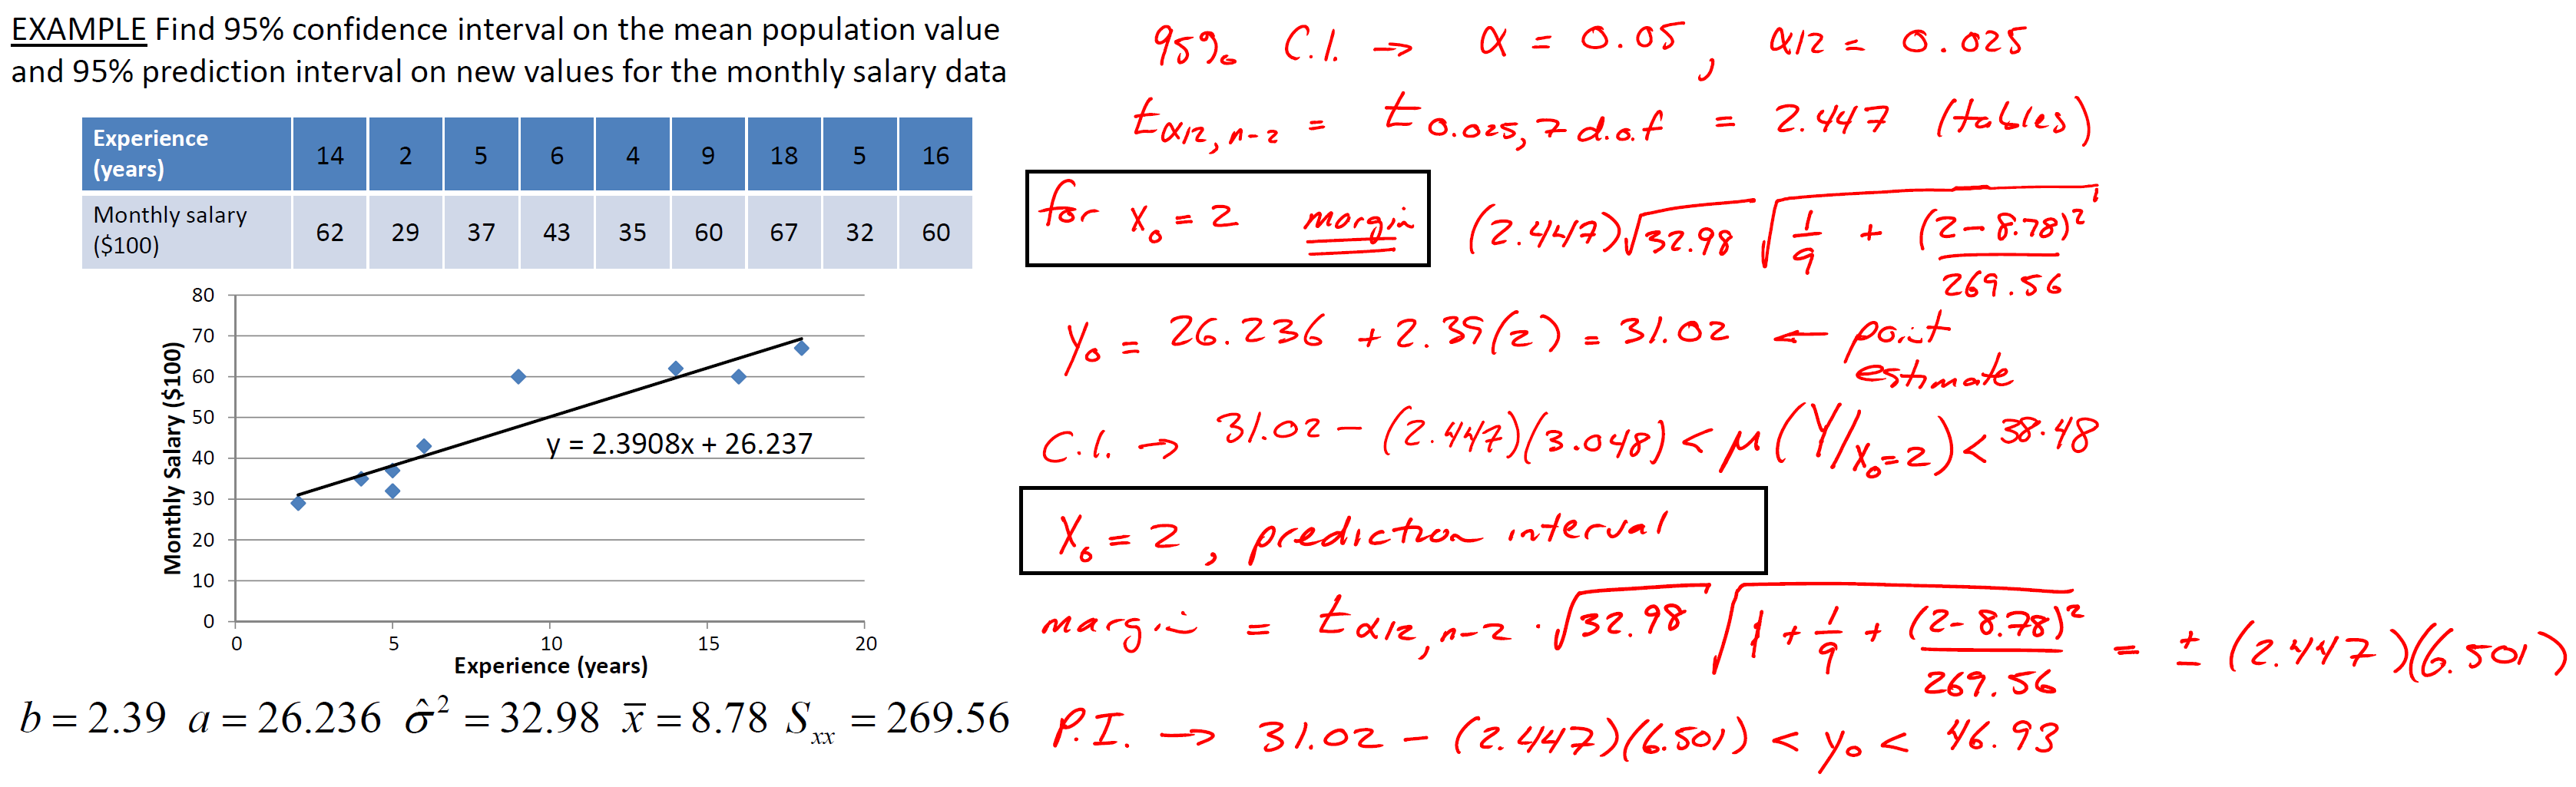 EXAMPLE Find 95% confidence interval on the mean population value
and 95% prediction interval on new values for the monthly salary data
Experience (years) 14 2 5 6 4 9 18 5 16
Monthly salary ($100) 62 29 37 43 35 60 67 32 60
80
70
60
50
40
30
20
10
0
Monthly Salary ($100)
y = 2.3908x + 26.237
0 5 10 15 20
Experience (years)
b = 2.39 a = 26.236 σ̂² = 32.98 x̄ = 8.78 Sxx = 269.56
95% C.I. → α = 0.05, α/2 = 0.025
t α/2, n-2 = t 0.025, 7 d.o.f = 2.447 (tables)
for x₀ = 2 margin (2.447)√32.98 √(1/9 + (2-8.78)²/269.56)
y₀ = 26.236 + 2.39(2) = 31.02 ← point
estimate
C.I. → 31.02 - (2.447)(3.048) < μ(Y/x₀=2) < 38.48
X₀ = 2, prediction interval
margin = t α/2, n-2 · √32.98 √(1 + 1/9 + (2-8.78)²/269.56) = ± (2.447)(6.501)
P.I. → 31.02 - (2.447)(6.501) < y₀ < 46.93